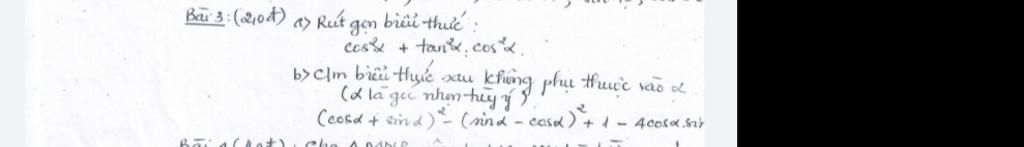 Bài 3: (2,0đ) a) Rút gọn biểu thức :
cos²α + tan²α . cos²α.
b) C/m biểu thức sau không phụ thuộc vào α
(α là góc nhọn tùy ý)
(cosα + sinα)² - (sinα - cosα)² + 1 - 4cosα.sin